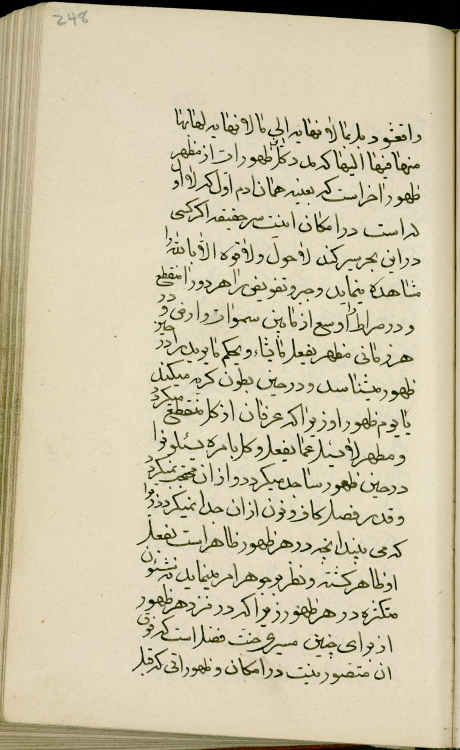 248
واقعه و بدء بما لا نهایه الی ما لا نهایه لها بها
منها فیها الیها که بدء کل ظهورات از مظهر
ظهور اخر است که بعینه همان ادم اول کہ لا اول
له است در امکان اینست سر حقیقه اگر کسی
در این بحر سیر کند لا حول و لا قوة الا بالله را
مشاهده مینماید و جبر و تفویض را هر دو را منقطع
و در صراط اوسع از ما بین سموات و ارض و در
هر زمانی مظهر یفعل ما یشاء و یحکم ما یرید را در حین
ظهور میشناسد و در حین بطون گریه میکند
یا یوم ظهور او زیرا که عرفان از کل منقطع میگردد
و مظهر لا یسئل عما یفعل و کل بامره یسئلون را
در حین ظهور ساجد میگردد و از ان محتجب نمیگردد
و قدر فصل کاف و نون از ان جدا نمیگردد زیرا
که می بیند انچه در هر ظهور ظاهر است بفعل
او ظاهر گشته و نظر بجوهر امر مینماید نه بشئون
متکثره در هر ظهور زیرا که در نزد هر ظهور
از برای چنین مسرع جنت فضل است که فوق
ان متصور نیست در امکان و ظهوراتی که قبل